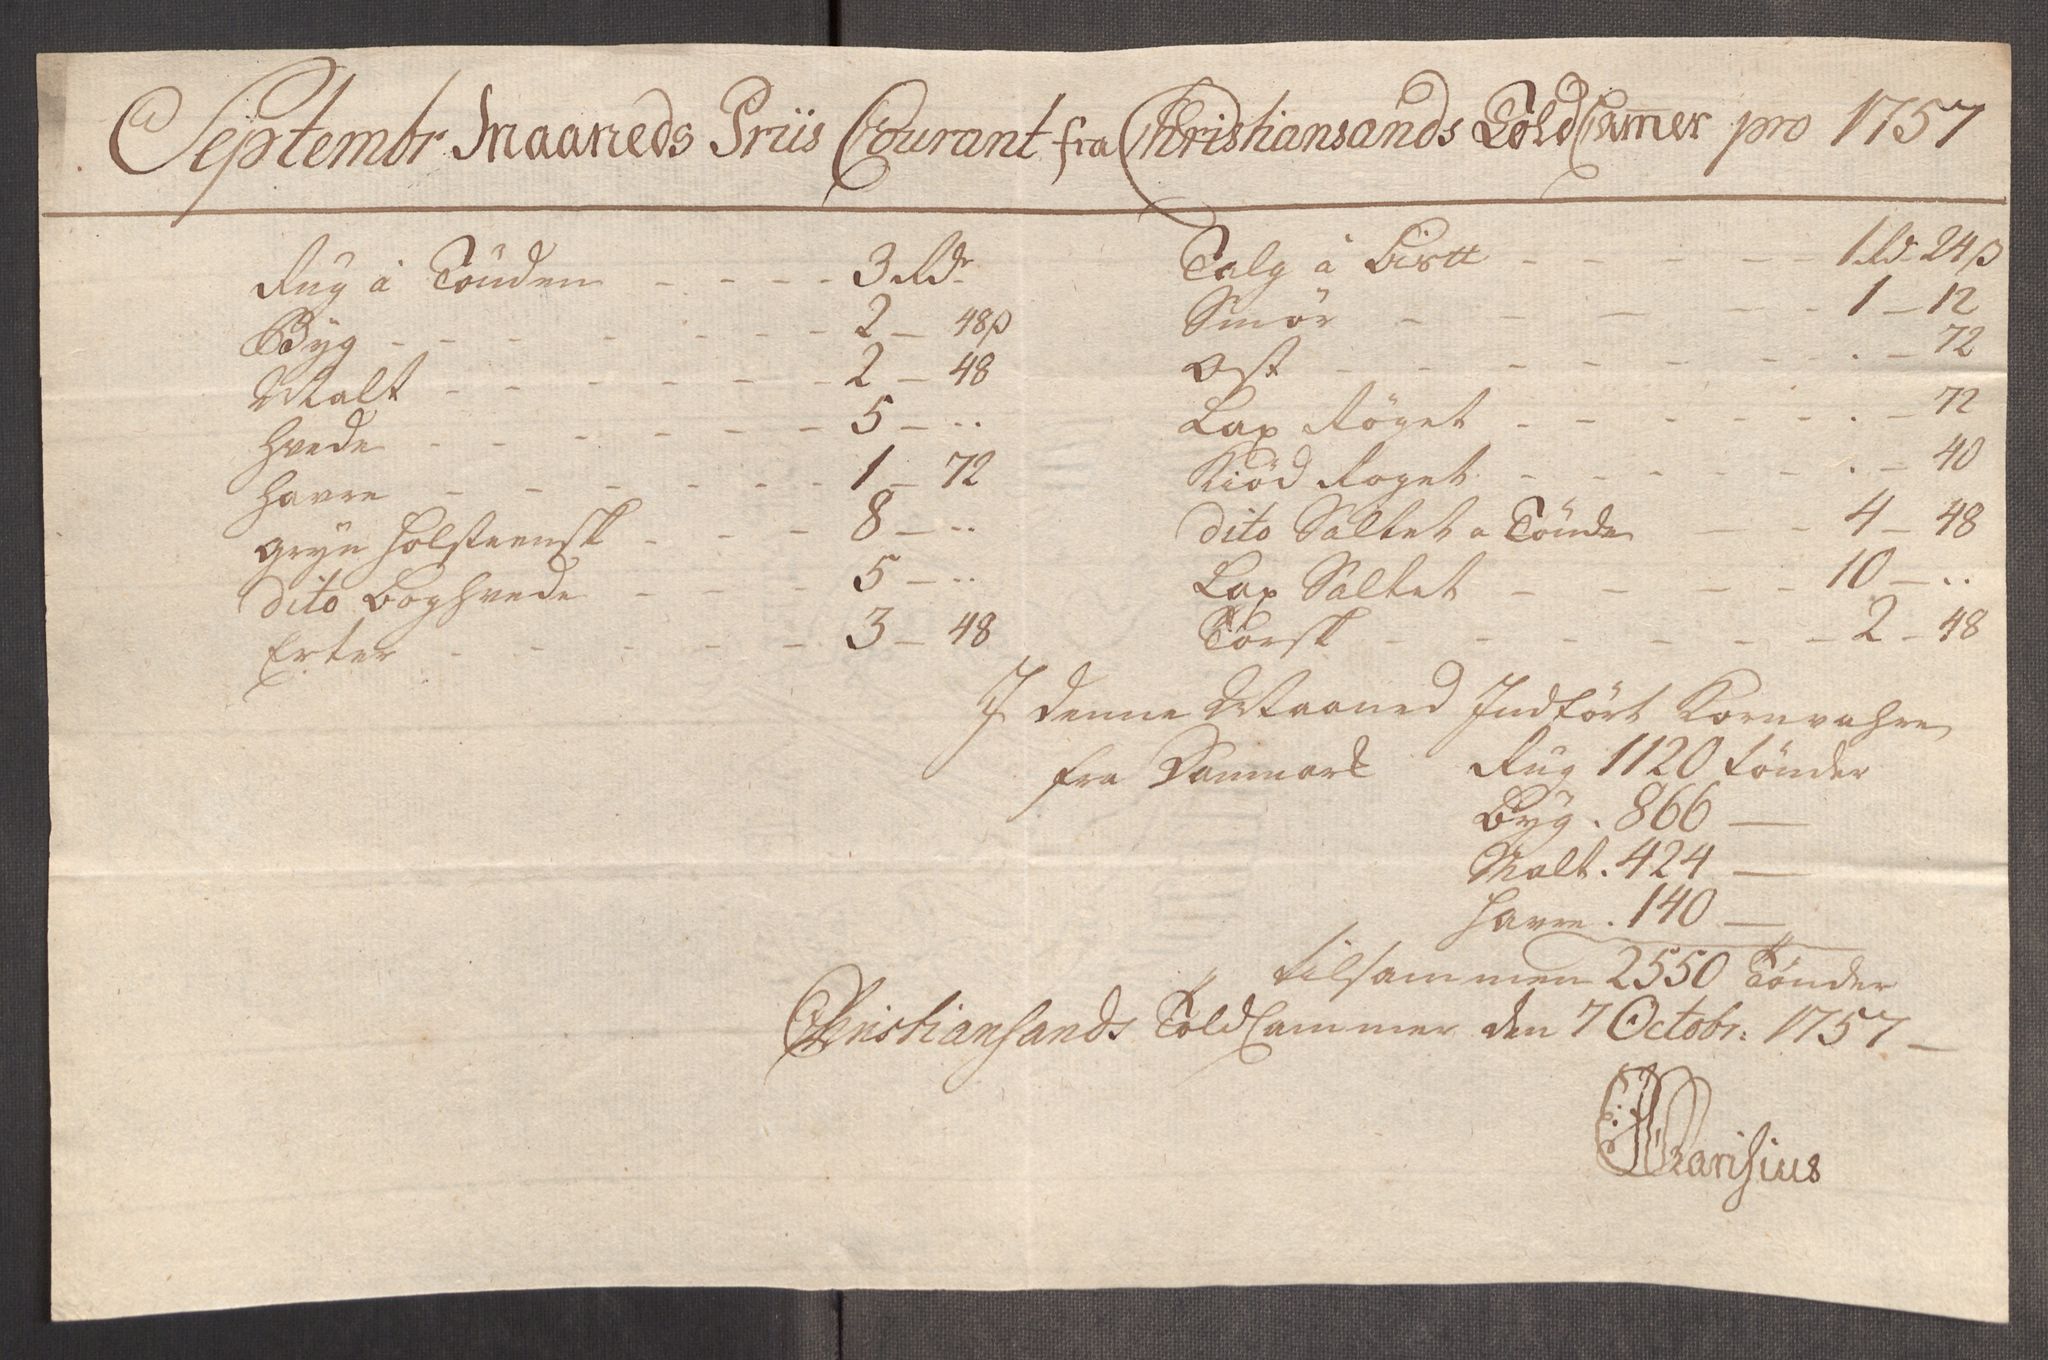 Septembr Maaneds Priis Courant fra Christiansands ToldCam̅er pro 1757
Rug á Tönden - - - - 3 Rdr
Byg - - - - - - - 2 - 48 β
Malt - - - - - - - 2 - 48
Hvede - - - - - - - 5 - ..
Havre - - - - - - - 1 - 72
Gryn Holsteensk - - - 8 - ..
dito Boghvede - - - 5 - ..
Erter - - - - - - 3 - 48
Talg á - - - - - 1 Rd 24 β
Smör - - - - - - 1 - 12
Ost - - - - - - - . - 72
Lax Röget - - - - - - . - 72
Kiöd Röget - - - - - . - 40
dito Saltet a Tönde - - 4 - 48
Lax Saltet - - - - - 10 - ..
Torsk - - - - - - - 2 - 48
I denne Maaned Indfört Kornvahre
fra Danmark Rug 1120 tönder
Byg . 866 —
Malt . 424 —
Havre . 140 —
tilsammen 2550 Tönder
Christiansands ToldCammer den 7 Octobr: 1757 -